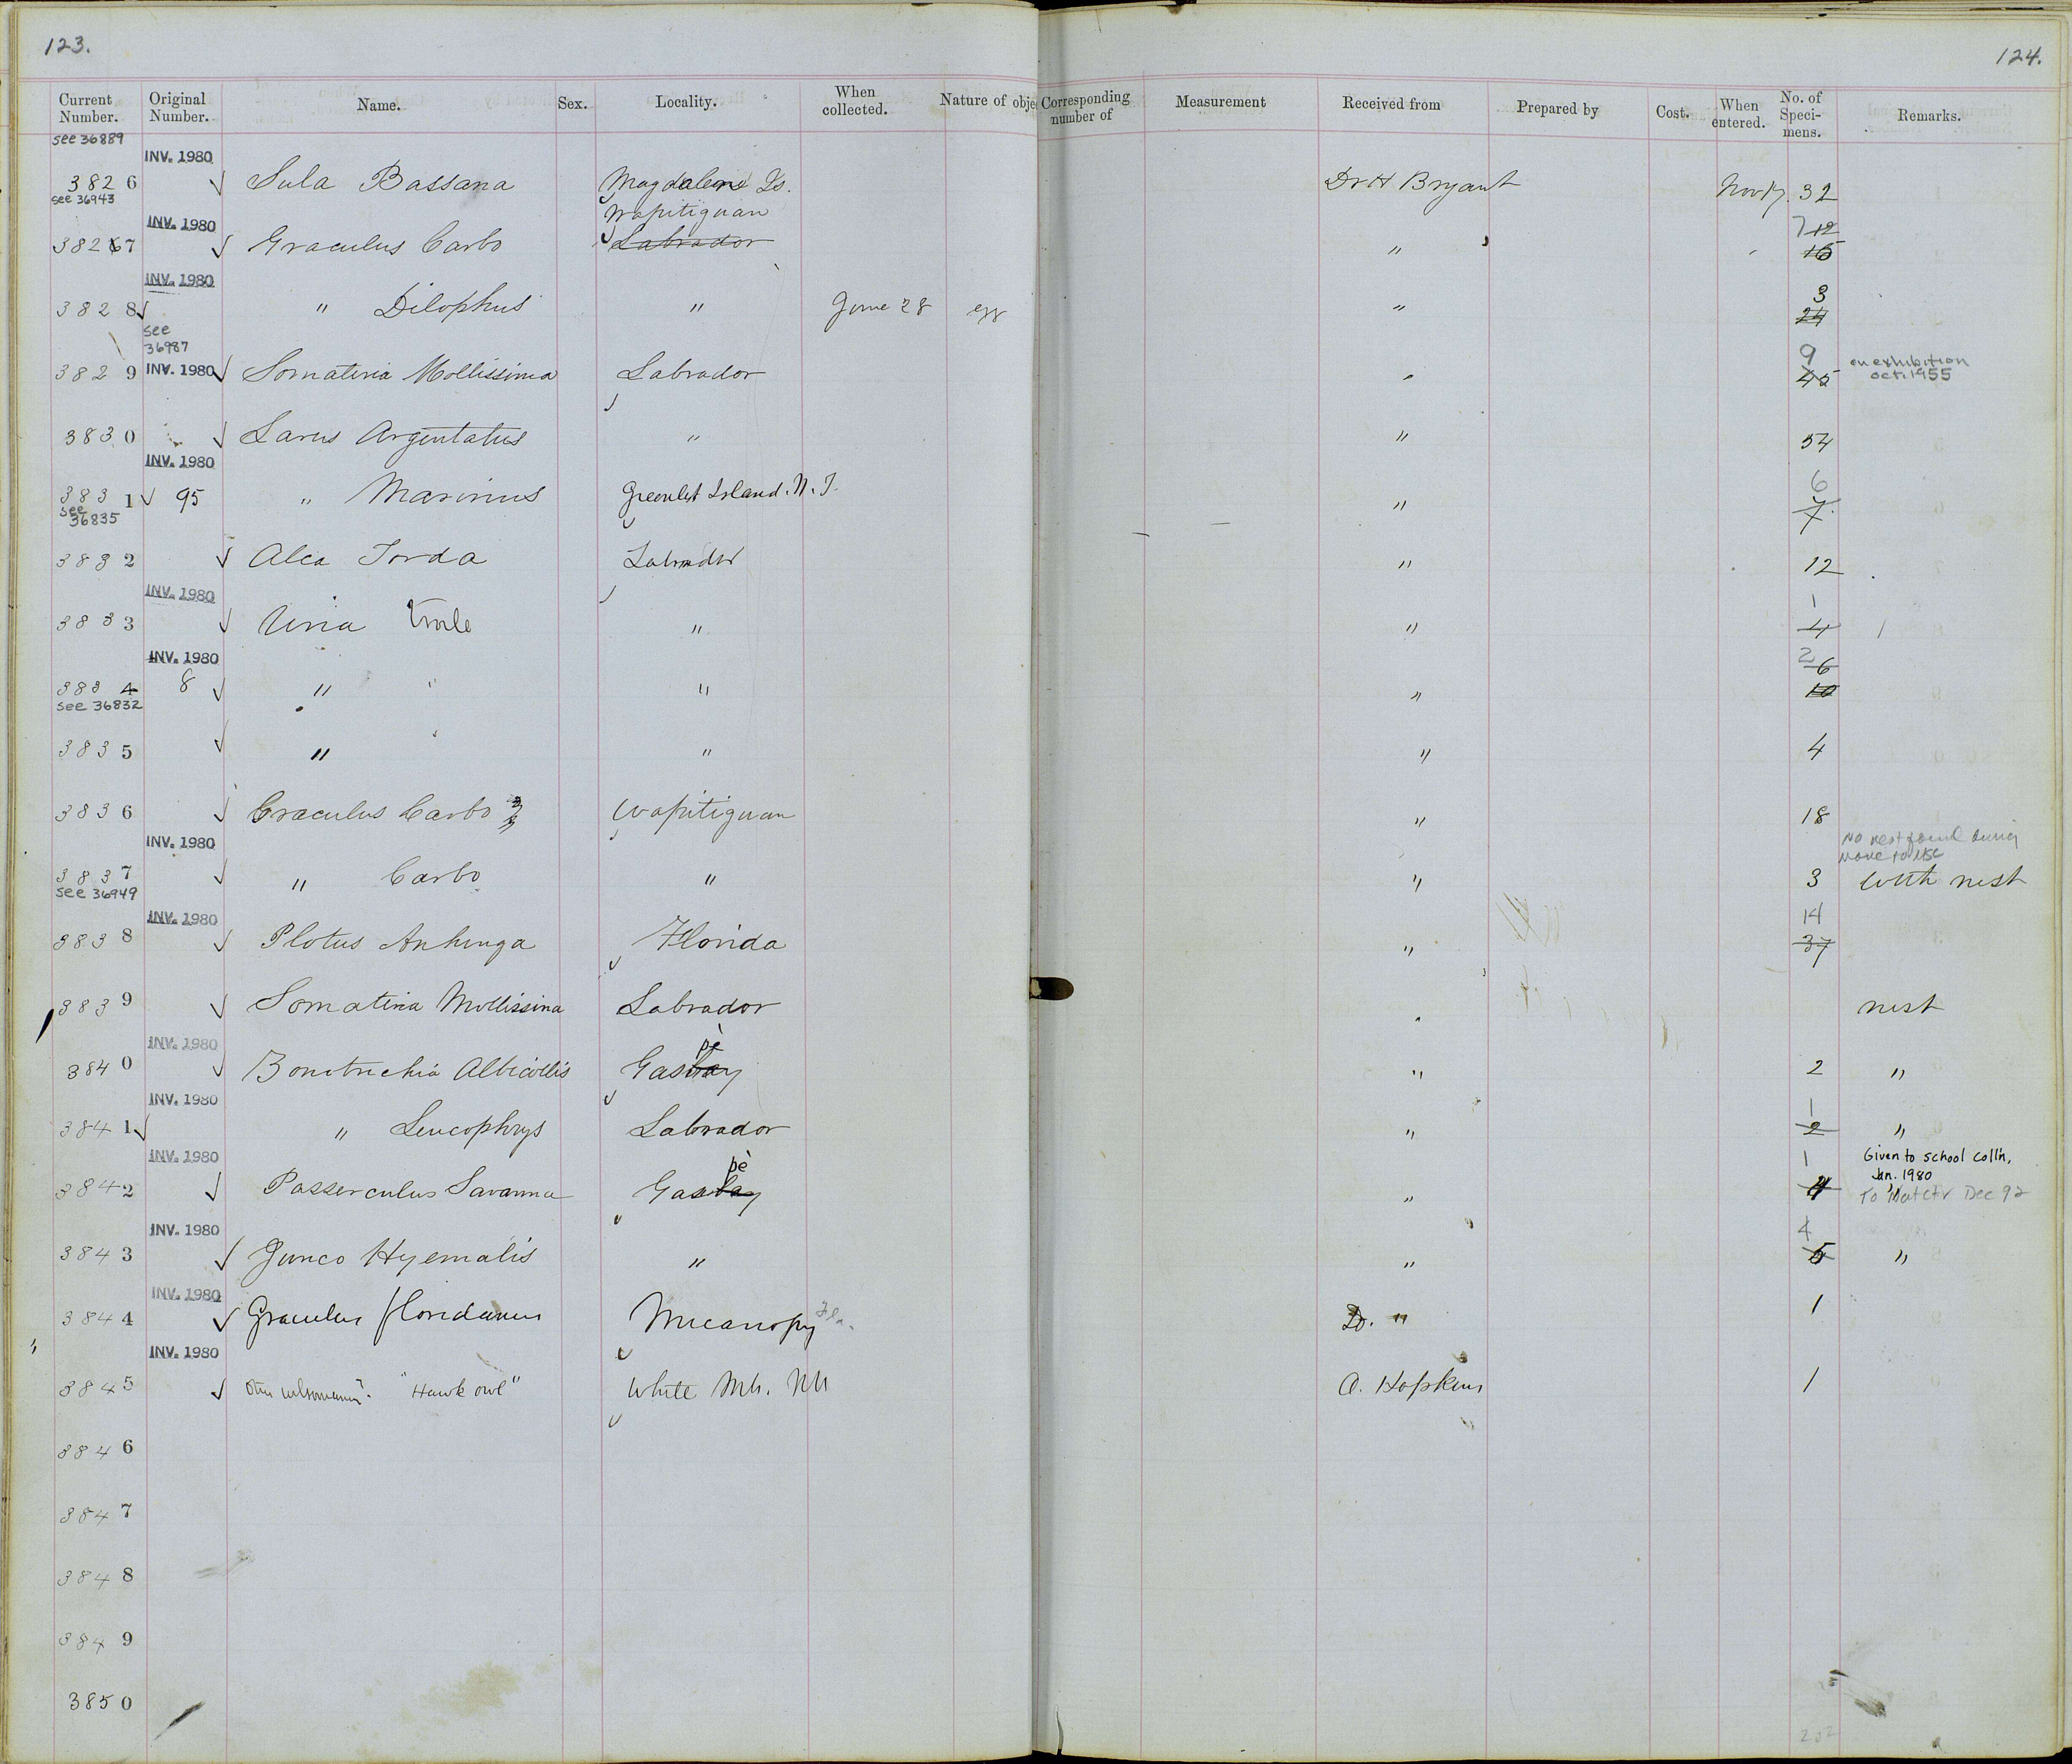 123.
124.
Current Number. Original Number. Name. Sex. Locality. When collected. Nature of obje Corresponding number of Measurement Received from Prepared by Cost. When entered. No. of Speci- mens. Remarks.
see 36889
INV. 1980
3826 Sula Bassana Magdalene Is. Dr H Bryant Nov 17. 32
see 36943
INV. 1980 Wapitiguan 7 12
3827 Graculus Carbo Labrador " 15
INV. 1980 3
3828 " Dilophus " June 28 egg " 24
see 36987
9 on exhibition
3829 INV. 1980 Somateria Mollissima Labrador " 45 oct. 1955
3830 Larus Argentatus " " 54
INV. 1980
6
3831 95 " Marinus Greenlet Island. N. F. " 7
see 36835
3832 Alca Torda Labrador " 12
INV. 1980 1
3833 Uria troile " " 4
INV. 1980 2 6
3834 8 " " " " 10
see 36832
3835 " " " 4
3836 Graculus Carbo Wapitiguan " 18
INV. 1980 No nest found during move to MSC
3837 " Carbo " " 3 with nest
see 36949
INV. 1980 14
3838 Plotus Anhinga Florida " 37
3839 Somateria Mollissima Labrador " nest
INV. 1980 pé
3840 Zonotrichia Albicollis Gasbay " 2 "
INV. 1980 1
3841 " Leucophrys Labrador " 2 "
INV. 1980 pé 1 Given to school coll'n,
Jan. 1980
3842 Passerculus Savanna Gasbay " 4 "
To Dec 92
INV. 1980 4
3843 Junco Hyemalis " " 5 "
INV. 1980
3844 Graculus floridanus Micanopy Fla. Dr. " 1
INV. 1980
3845 "Hawk owl" White Mts. NH A. Hopkins 1
3846
3847
3848
3849
3850
202